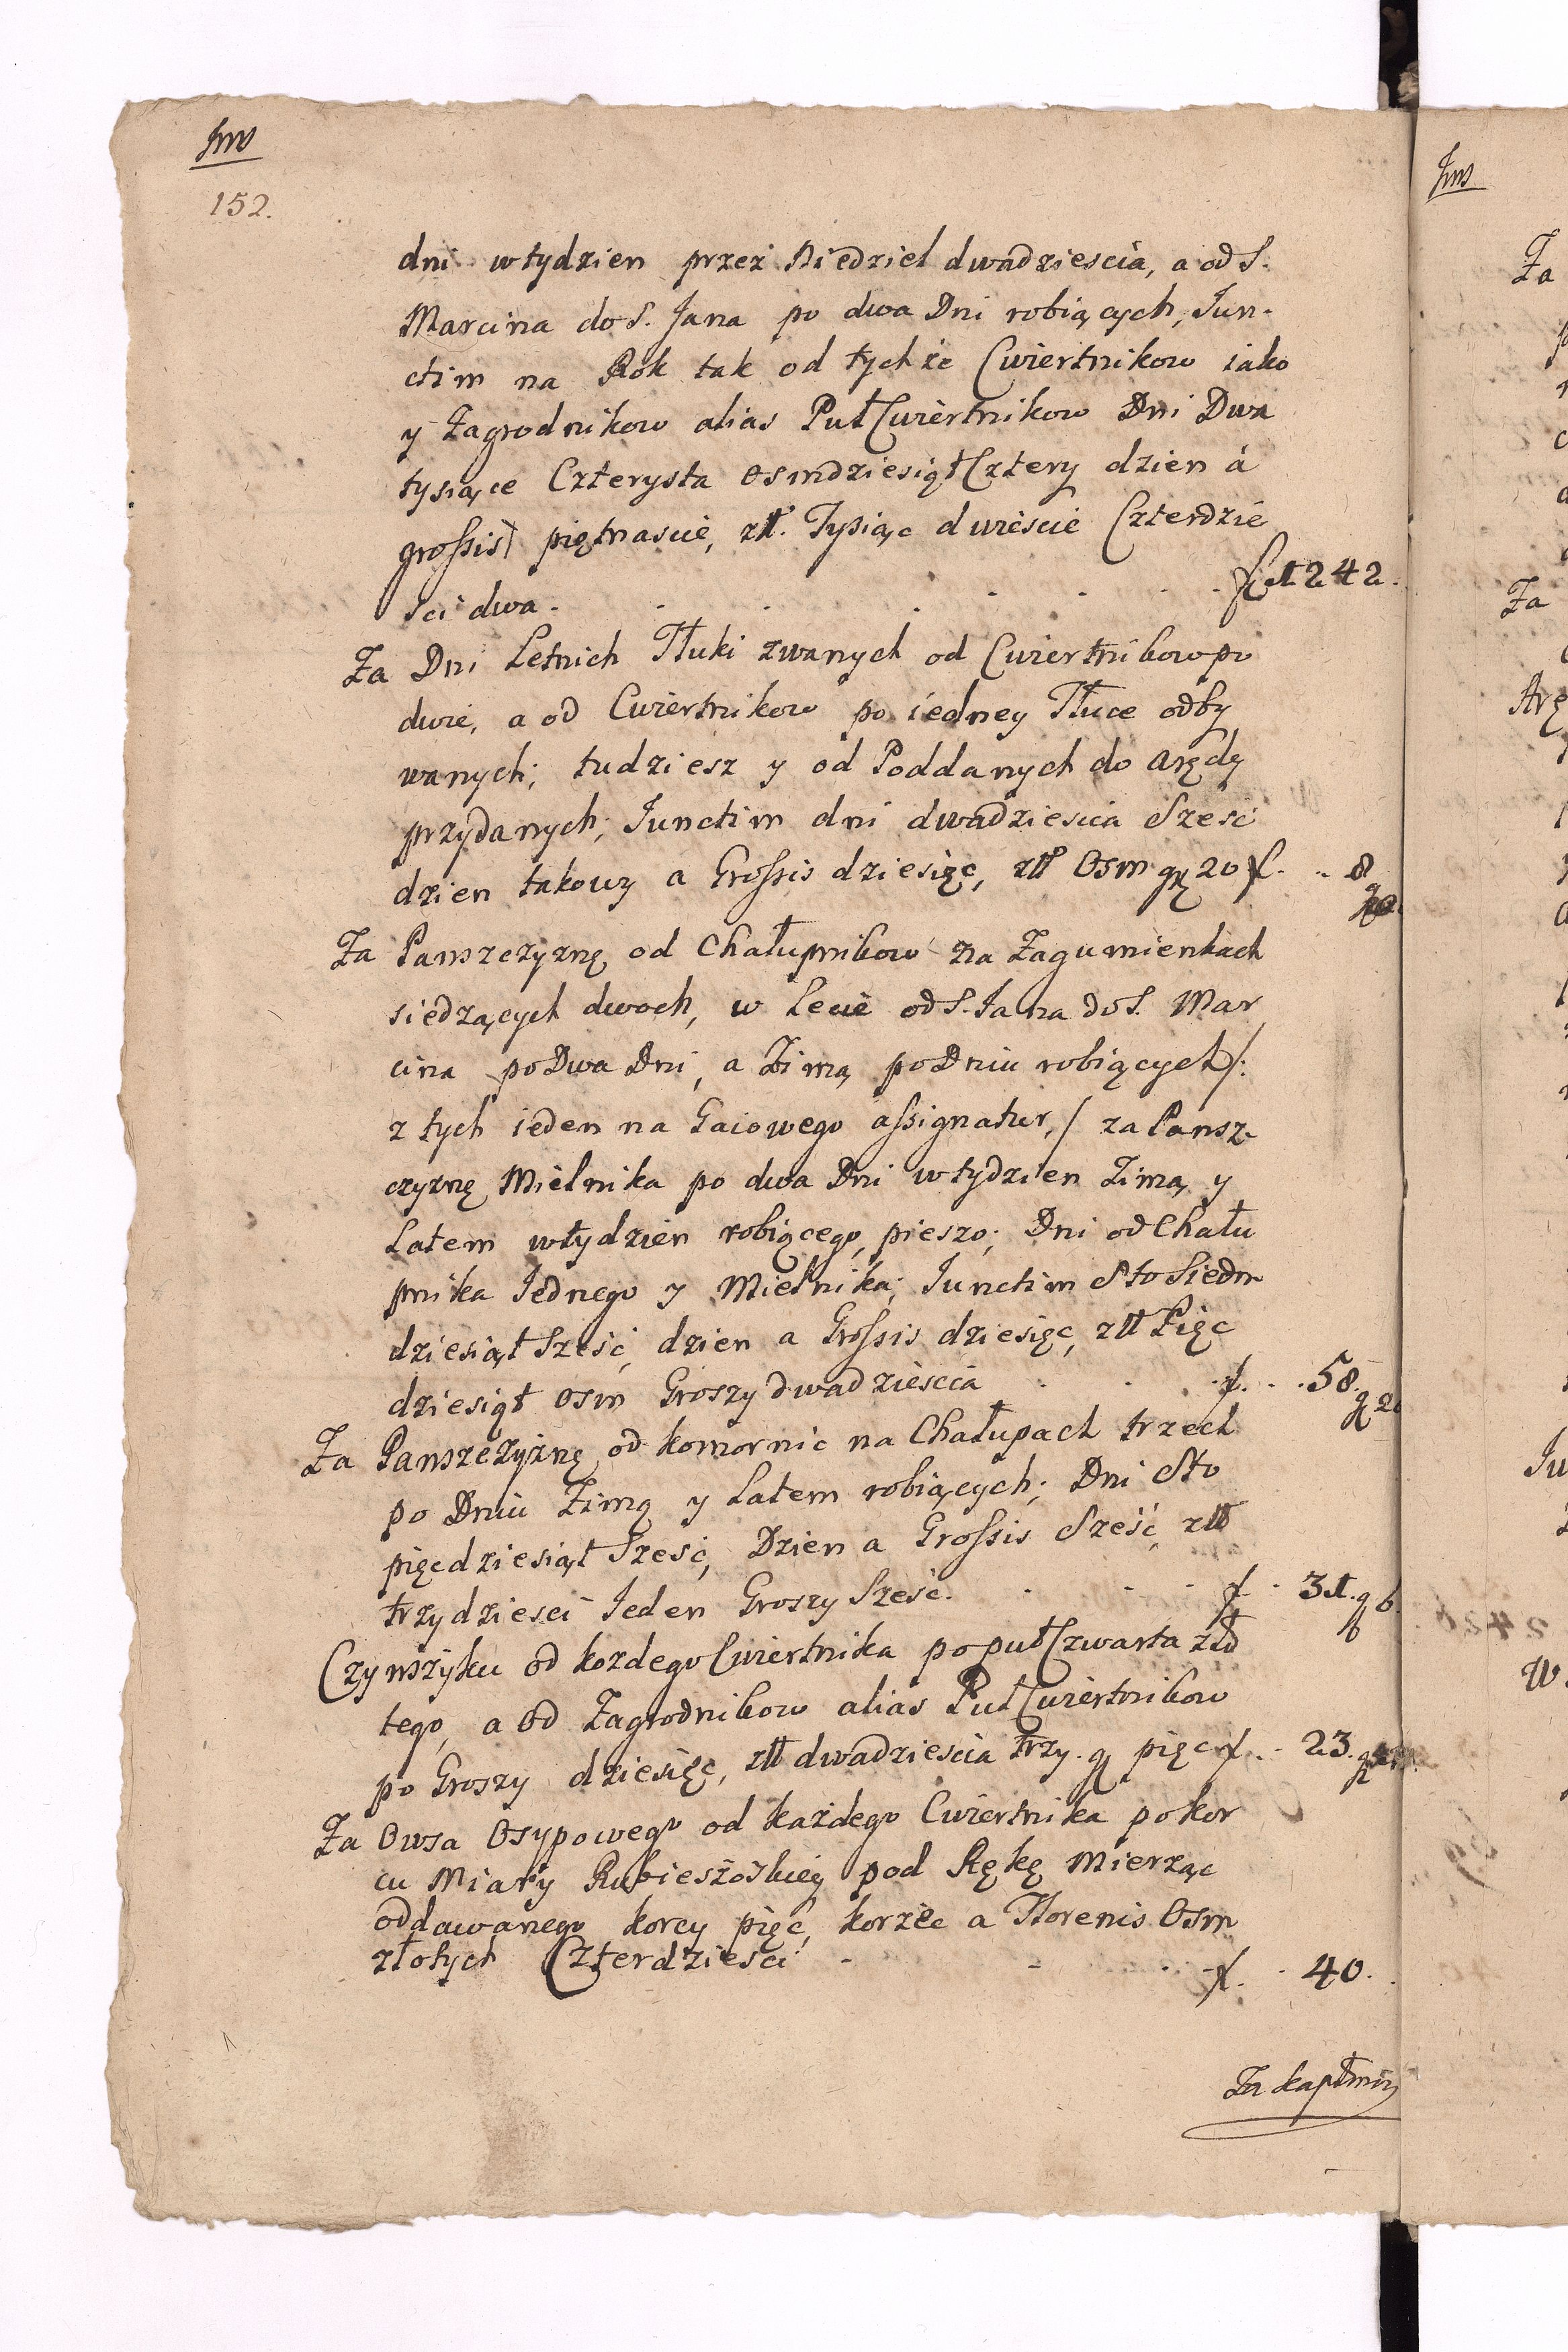 Jms
152.
dni w tydzien przez Niedziel dwadziescia, a od S.
Marcina do S. Jana po dwa Dni robiących, Jun-
ctim na Rok tak od tychże Cwiertnikow iako
y Zagrodnikow alias PułCwiertnikow Dni Dwa
tysiące Czterysta osmdziesiątCztery dzien á
grossis piętnascie, zł. Tysiąc dwiescie Czterdzie
sci dwa. f 1242.
Za Dni Letnich Tłuki zwanych od Cwiertnikow po
dwie, a od Cwiertnikow po iedney Tłuce odby
wanych; tudziesz y od Poddanych do Arędy
przydanych; Junctim dni dwadziescia Szesć
dzien takowy a Grossis dziesięc, zł Osm gr 20 f. 8
Za Panszczyznę od Chałupnikow na Zagumienkach
siedzących dwoch, w Lecie od S. Jana do S. Mar
cina po Dwa Dni, a Zimą po Dniu robiących /:
z tych ieden na Gaiowego assignatur, / za Pansz-
czyznę Mielnika po dwa Dni w tydzien Zimą y
Latem w tydzien robiącego, pieszo; Dni od Chału
pnika Jednego y Mielnika; Junctim Sto Siedm
dziesiąt Szesć, dzien a Grossis dziesięc, zł Pięc
dziesiąt osm Groszy dwadziescia f. 58. g 20
Za Panszczyznę od komornic na Chałupach trzech
po Dniu Zimą y Latem robiących; Dni Sto
pięcdziesiąt Szesć, Dzien a Grossis Szesć, zł
trzydziesci Jeden Groszy Szesc. f 31. g 6.
Czynszyku od kozdego Cwiertnika po pułCzwarta zło
tego, a od Zagrodnikow alias PułCwiertnikow
po Groszy dziesięc, zł dwadziescia trzy. g pięc f. 23.
Za Owsa Osypowego od każdego Cwiertnika po kor
cu Miary Rubieszowskiey pod Rękę Mierząc
oddawanego korcy pięć, korzec a Florenis Osm
złotych Czterdziesci f. 40.
Za kapłony
Jms
Za
Za
Arę
Ju
W